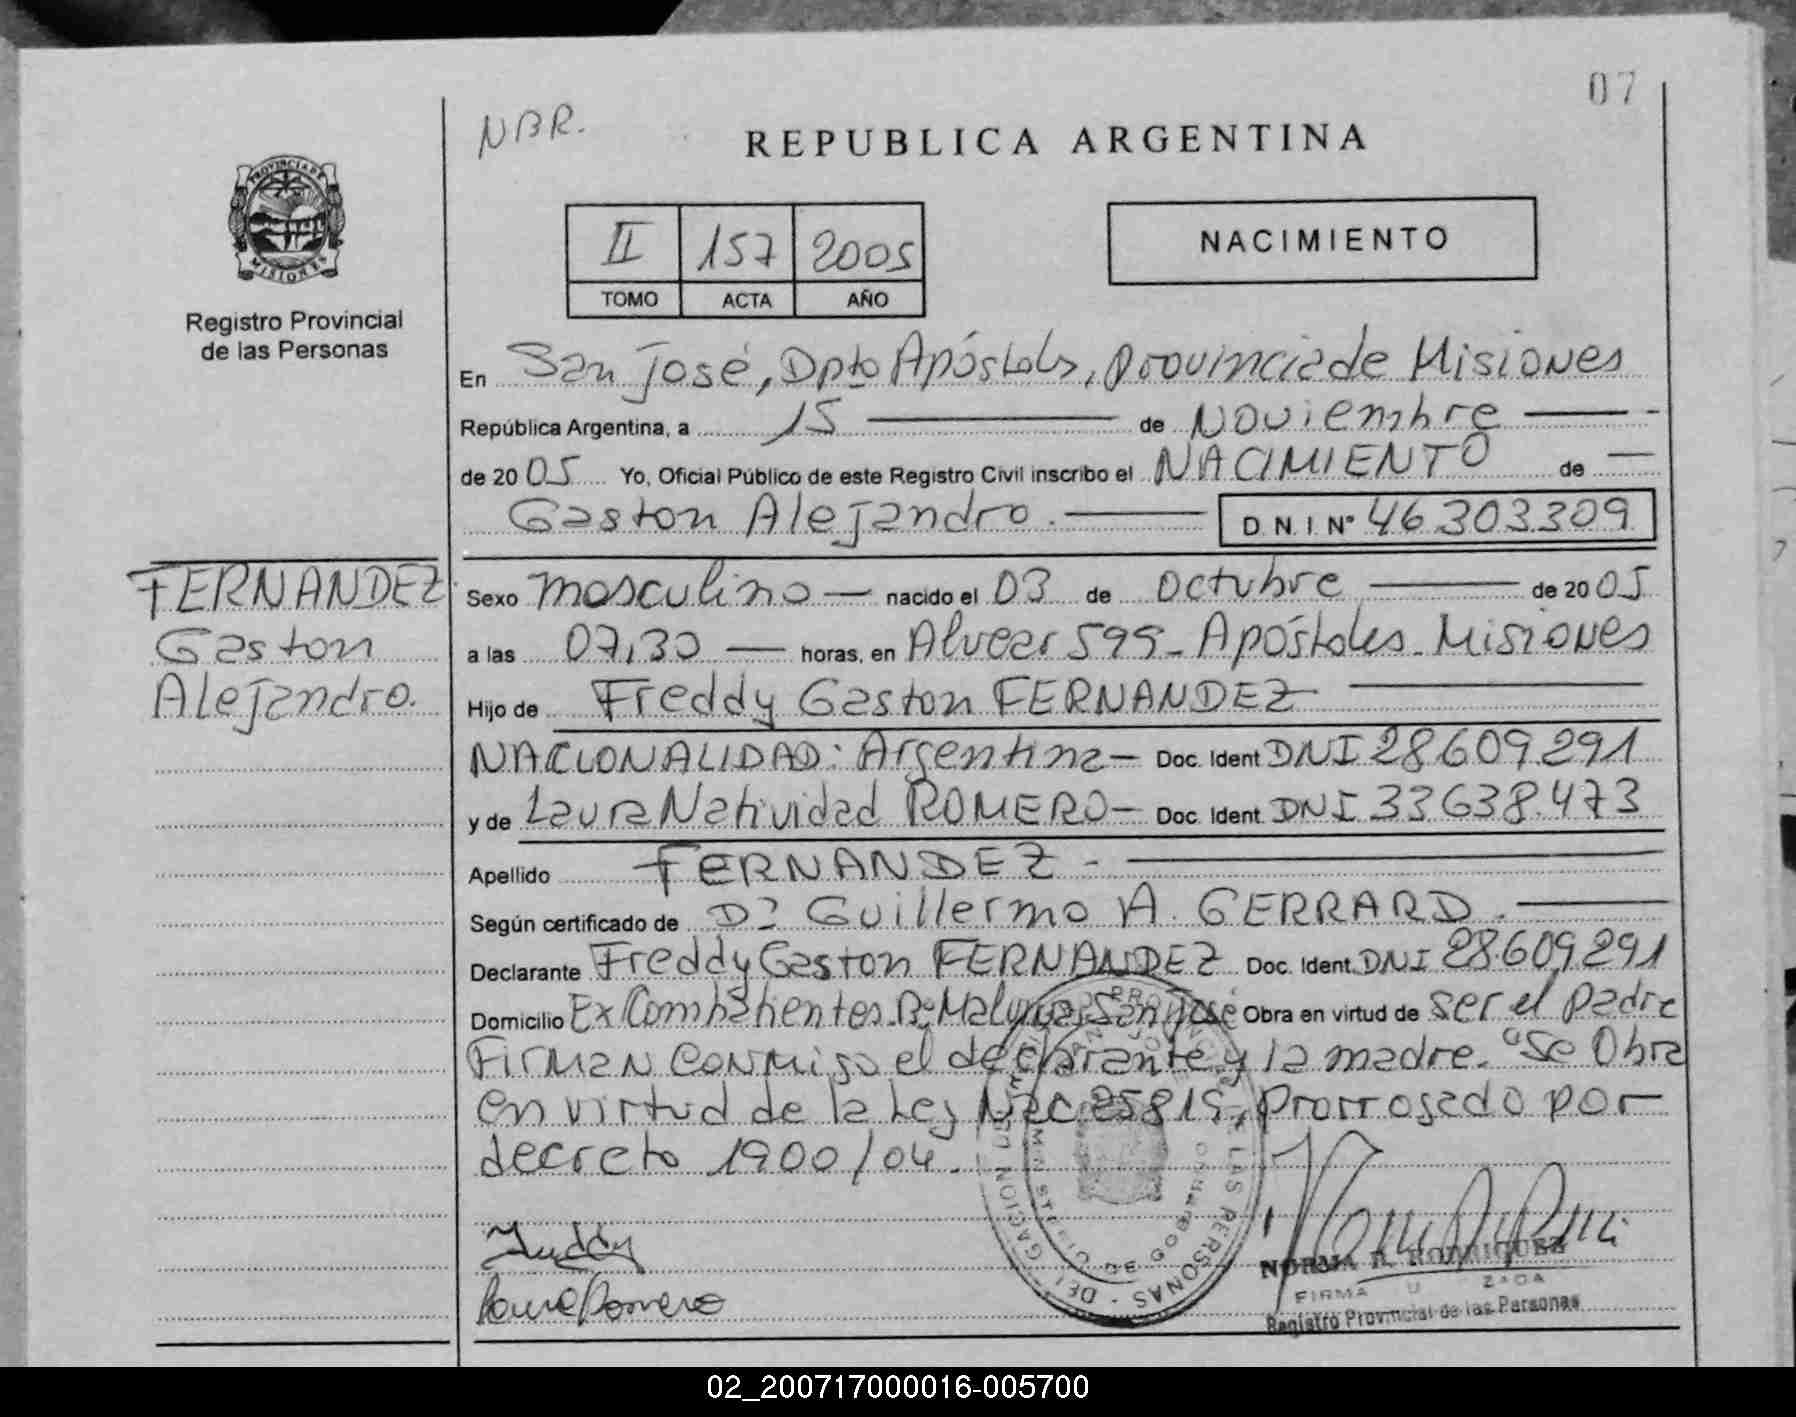 07
NBR.
REPUBLICA ARGENTINA
PROVINCIA DE MISIONES
Registro Provincial
de las Personas
II 157 2005
TOMO ACTA AÑO
NACIMIENTO
En San José, Dpto Apóstoles, provincia de Misiones
República Argentina, a 15 de Noviembre
de 2005 Yo, Oficial Público de este Registro Civil inscribo el NACIMIENTO de
Gaston Alejandro. D.N.I Nº 46303309
FERNANDEZ
Gaston
Alejandro.
Sexo masculino nacido el 03 de octubre de 2005
a las 07,30 horas, en Alvear 599- Apóstoles- Misiones
Hijo de Freddy Gaston FERNANDEZ
NACIONALIDAD: Argentina- Doc. Ident DNI 28609291
y de Laura Natividad ROMERO- Doc. Ident. DNI 33638.473
Apellido FERNANDEZ-
Según certificado de Dr Guillermo A. GERRARD.
Declarante Freddy Gaston FERNANDEZ Doc. Ident. DNI 28.609.291
Domicilio Ex Combatientes Bº Malvinas San José Obra en virtud de ser el padre
Firman conmigo el declarante y la madre. "Se Obra
en virtud de la Ley Nac 25819, prorrogado por
decreto 1900/04.
Freddy
Laura Romero
NORMA R. RODRIGUEZ
FIRMA
Registro Provincial de las Personas
02_200717000016-005700